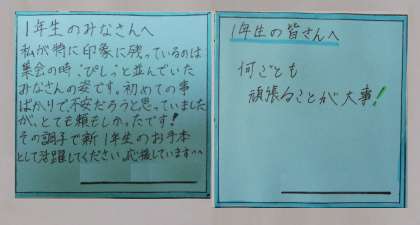 1年生のみなさんへ
私が特に印象に残っているのは
集会の時、ぴしっと並んでいた
みなさんの姿です。初めての事
ばかりで、不安だろうと思っていました
が、とても頼もしかったです!
その調子で新1年生のお手本
として活躍してください。応援しています^^
1年生の皆さんへ
何ごとも
頑張ることが大事!